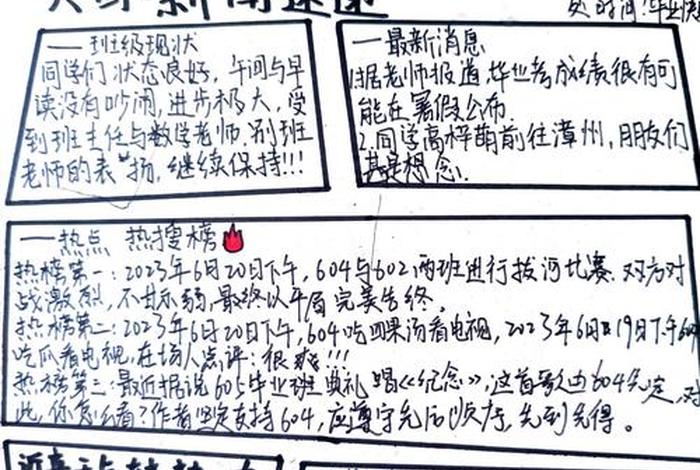 新闻速递
一班级现状
同学们状态良好，午间与早
读没有吵闹，进步极大，受
到班主任与数学老师.别班
老师的表扬，继续保持!!!
一最新消息
1.据老师报道,毕业考成绩很有可
能在暑假公布.
2.同学高梓萌前往漳州，朋友们
甚是想念.
一热点 热搜榜
热榜第一：2023年6月20日下午，604与602两班进行拔河比赛.双方对
战激烈，不甘示弱,最终以平局完美告终.
热榜第二：2023年6月20日下午，604吃四果汤看电视，2023年6月19日下午604
吃瓜看电视,在场人点评：很爽!!!
热榜第三：最近据说605毕业班典礼唱《纪念》，这首歌由604先定，对
此，你怎么看？作者坚定支持604，应遵守先后次序，先到先得。